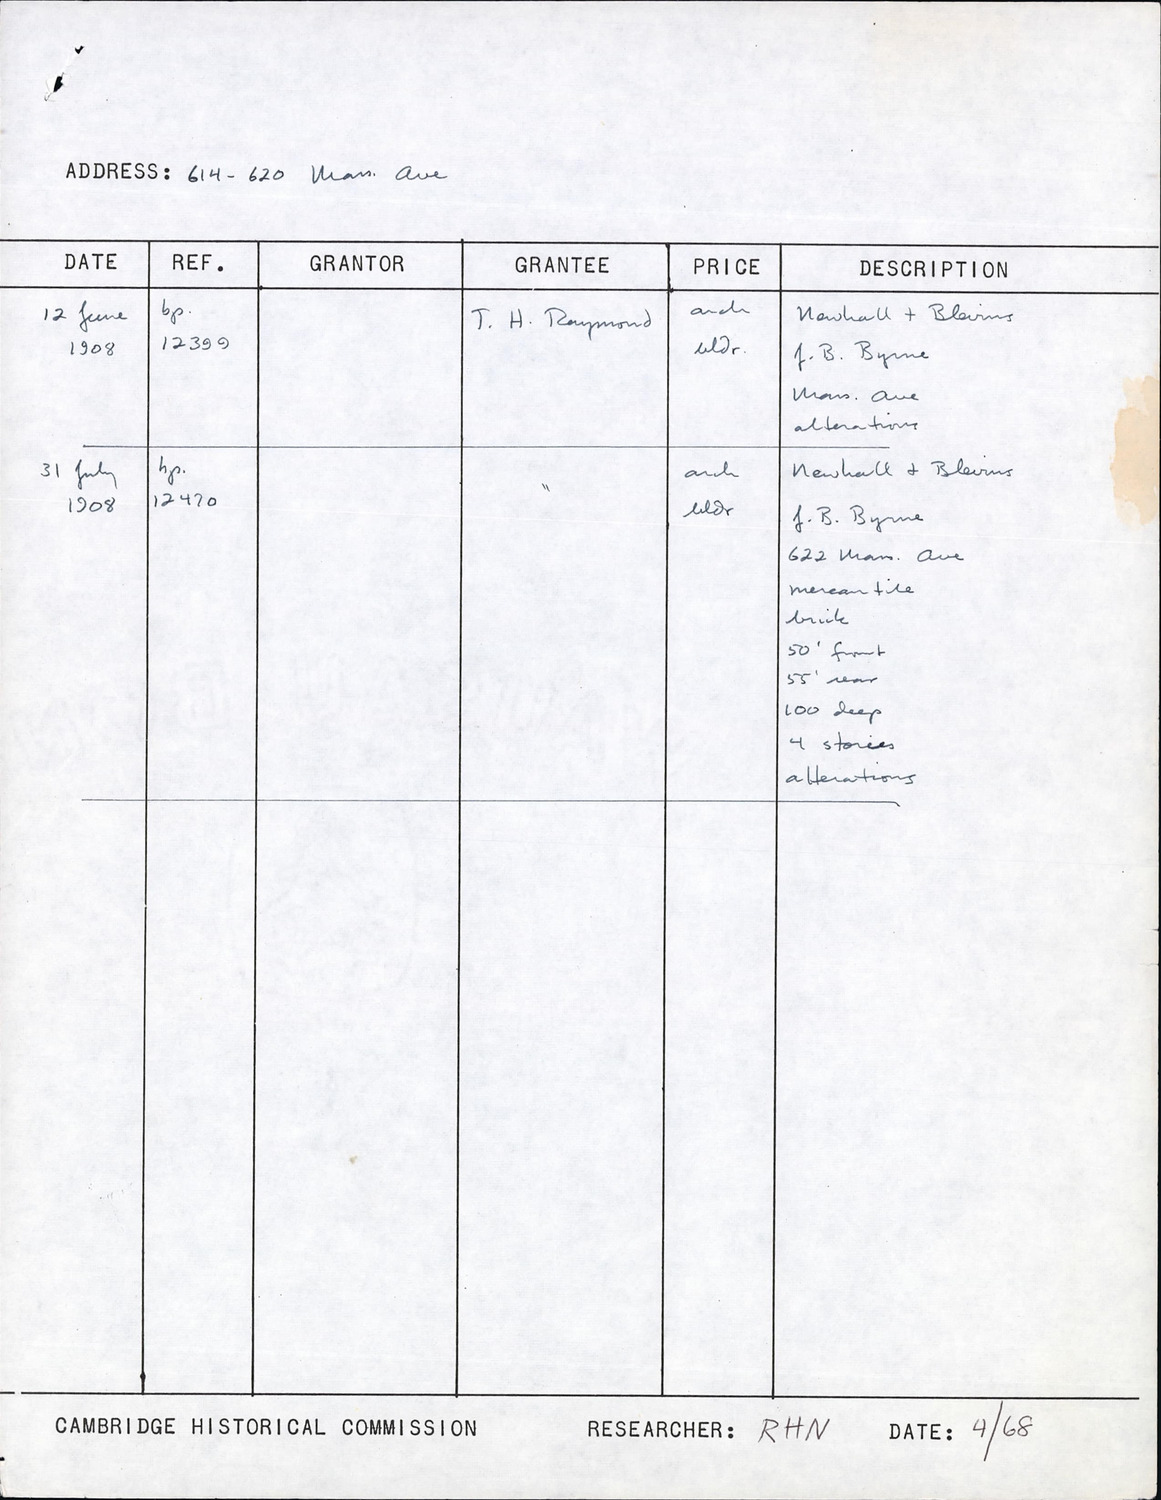 ADDRESS: 614-620 Mass. Ave
DATE REF. GRANTOR GRANTEE PRICE DESCRIPTION
12 June bp. T. H. Raymond arch Newhall + Blevins
1908 12399 bldr. J. B. Byrne
Mass. Ave
alterations
31 July bp. " arch Newhall + Blevins
1908 12470 bldr J. B. Byrne
622 Mass. Ave
mercantile
brick
50' front
55' rear
100 deep
4 stories
alterations
CAMBRIDGE HISTORICAL COMMISSION RESEARCHER: RHN DATE: 4/68